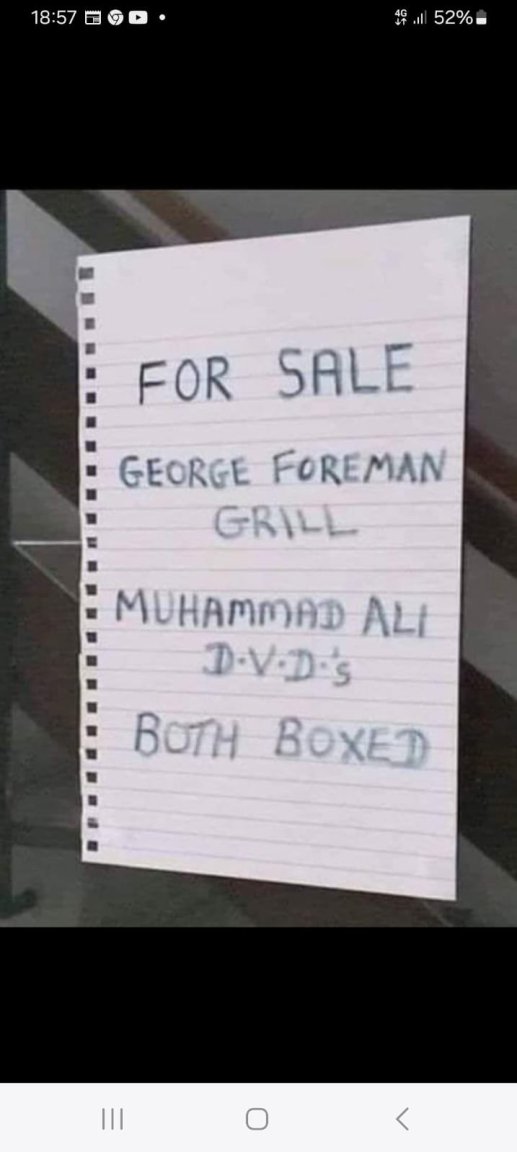 18:57
4G
52%
FOR SALE
GEORGE FOREMAN
GRILL
MUHAMMAD ALI
D.V.D.'s
BOTH BOXED